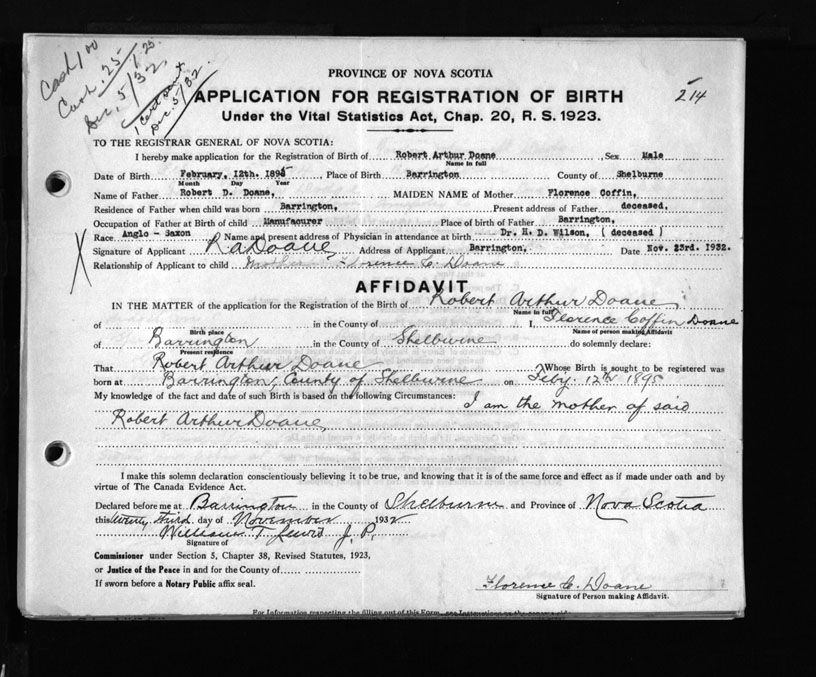 Cash 1 00
Cash .25
Dec. 5/32
1.25
1 Cert sent
Dec. 5/32
214
PROVINCE OF NOVA SCOTIA
APPLICATION FOR REGISTRATION OF BIRTH
Under the Vital Statistics Act, Chap. 20, R. S. 1923.
TO THE REGISTRAR GENERAL OF NOVA SCOTIA:
I hereby make application for the Registration of Birth of Robert Arthur Doane, Sex Male
Name in full
Date of Birth February, 12th. 1895 Place of Birth Barrington County of Shelburne
Month Day Year
Name of Father Robert D. Doane, MAIDEN NAME of Mother Florence Coffin,
Residence of Father when child was born Barrington, Present address of Father deceased,
Occupation of Father at Birth of child Manufacurer Place of birth of Father Barrington,
Race Anglo - Saxon Name and present address of Physician in attendance at birth Dr. H. D. Wilson, ( deceased )
Signature of Applicant R. A. Doane, Address of Applicant Barrington, Date Nov. 23rd. 1932.
X Relationship of Applicant to child Mother Florence C. Doane
AFFIDAVIT
IN THE MATTER of the application for the Registration of the Birth of Robert Arthur Doane,
Name in full
of in the County of I, Florence Coffin Doane
Birth place Name of person making Affidavit
of Barrington in the County of Shelburne do solemnly declare:
Present residence
That Robert Arthur Doane Whose Birth is sought to be registered was
born at Barrington, County of Shelburne on Feby. 12th 1895
My knowledge of the fact and date of such Birth is based on the following Circumstances: I am the mother of said
Robert Arthur Doane,
I make this solemn declaration conscientiously believing it to be true, and knowing that it is of the same force and effect as if made under oath and by
virtue of The Canada Evidence Act.
Declared before me at Barrington in the County of Shelburne and Province of Nova Scotia
this twenty third day of November 1932
William T. Lewis J. P.
Signature of
Commissioner under Section 5, Chapter 38, Revised Statutes, 1923,
or Justice of the Peace in and for the County of
If sworn before a Notary Public affix seal.
Florence C. Doane
Signature of Person making Affidavit.
For Information respecting the filling out of this Form, see Instructions on the